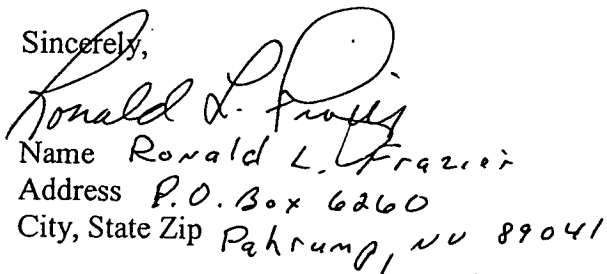 Sincerely,
Ronald L. Frazier
Name Ronald L. Frazier
Address P.O. Box 6260
City, State Zip Pahrump, NV 89041